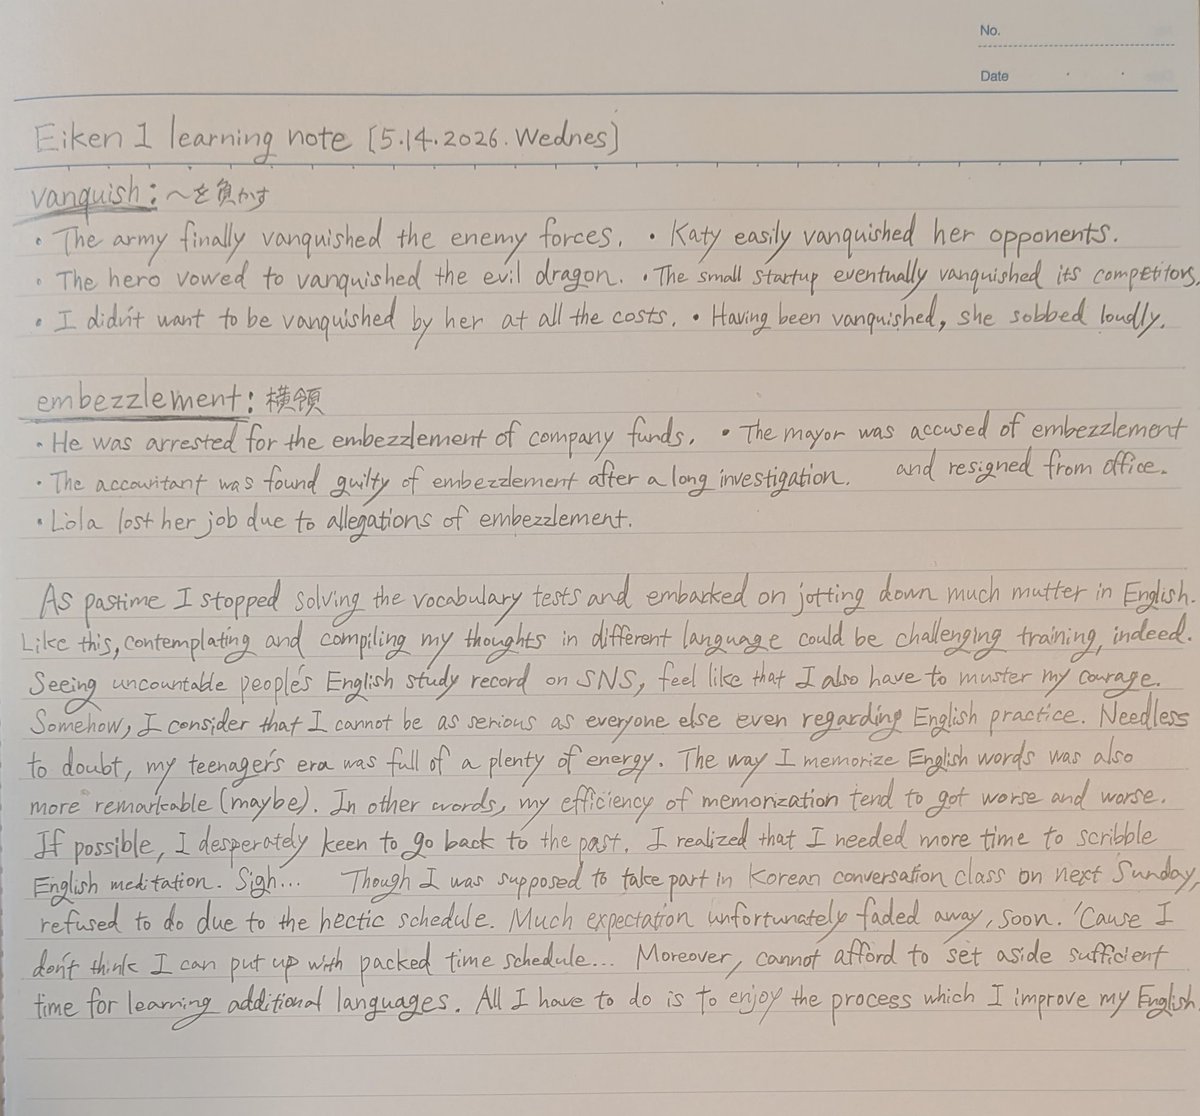 No.
Date
Eiken 1 learning note [5.14.2026. Wednes]
vanquish: ～を負かす
• The army finally vanquished the enemy forces. • Katy easily vanquished her opponents.
• The hero vowed to vanquished the evil dragon. • The small startup eventually vanquished its competitors.
• I didn't want to be vanquished by her at all the costs. • Having been vanquished, she sobbed loudly.
embezzlement: 横領
• He was arrested for the embezzlement of company funds. • The mayor was accused of embezzlement
and resigned from office.
• The accountant was found guilty of embezzlement after a long investigation.
• Lola lost her job due to allegations of embezzlement.
As pastime I stopped solving the vocabulary tests and embarked on jotting down much mutter in English.
Like this, contemplating and compiling my thoughts in different language could be challenging training, indeed.
Seeing uncountable people's English study record on SNS, feel like that I also have to muster my courage.
Somehow, I consider that I cannot be as serious as everyone else even regarding English practice. Needless
to doubt, my teenager's era was full of a plenty of energy. The way I memorize English words was also
more remarkable (maybe). In other words, my efficiency of memorization tend to got worse and worse.
If possible, I desperately keen to go back to the past. I realized that I needed more time to scribble
English meditation. Sigh... Though I was supposed to take part in Korean conversation class on next Sunday,
refused to do due to the hectic schedule. Much expectation unfortunately faded away, soon. 'Cause I
don't think I can put up with packed time schedule... Moreover, cannot afford to set aside sufficient
time for learning additional languages. All I have to do is to enjoy the process which I improve my English.